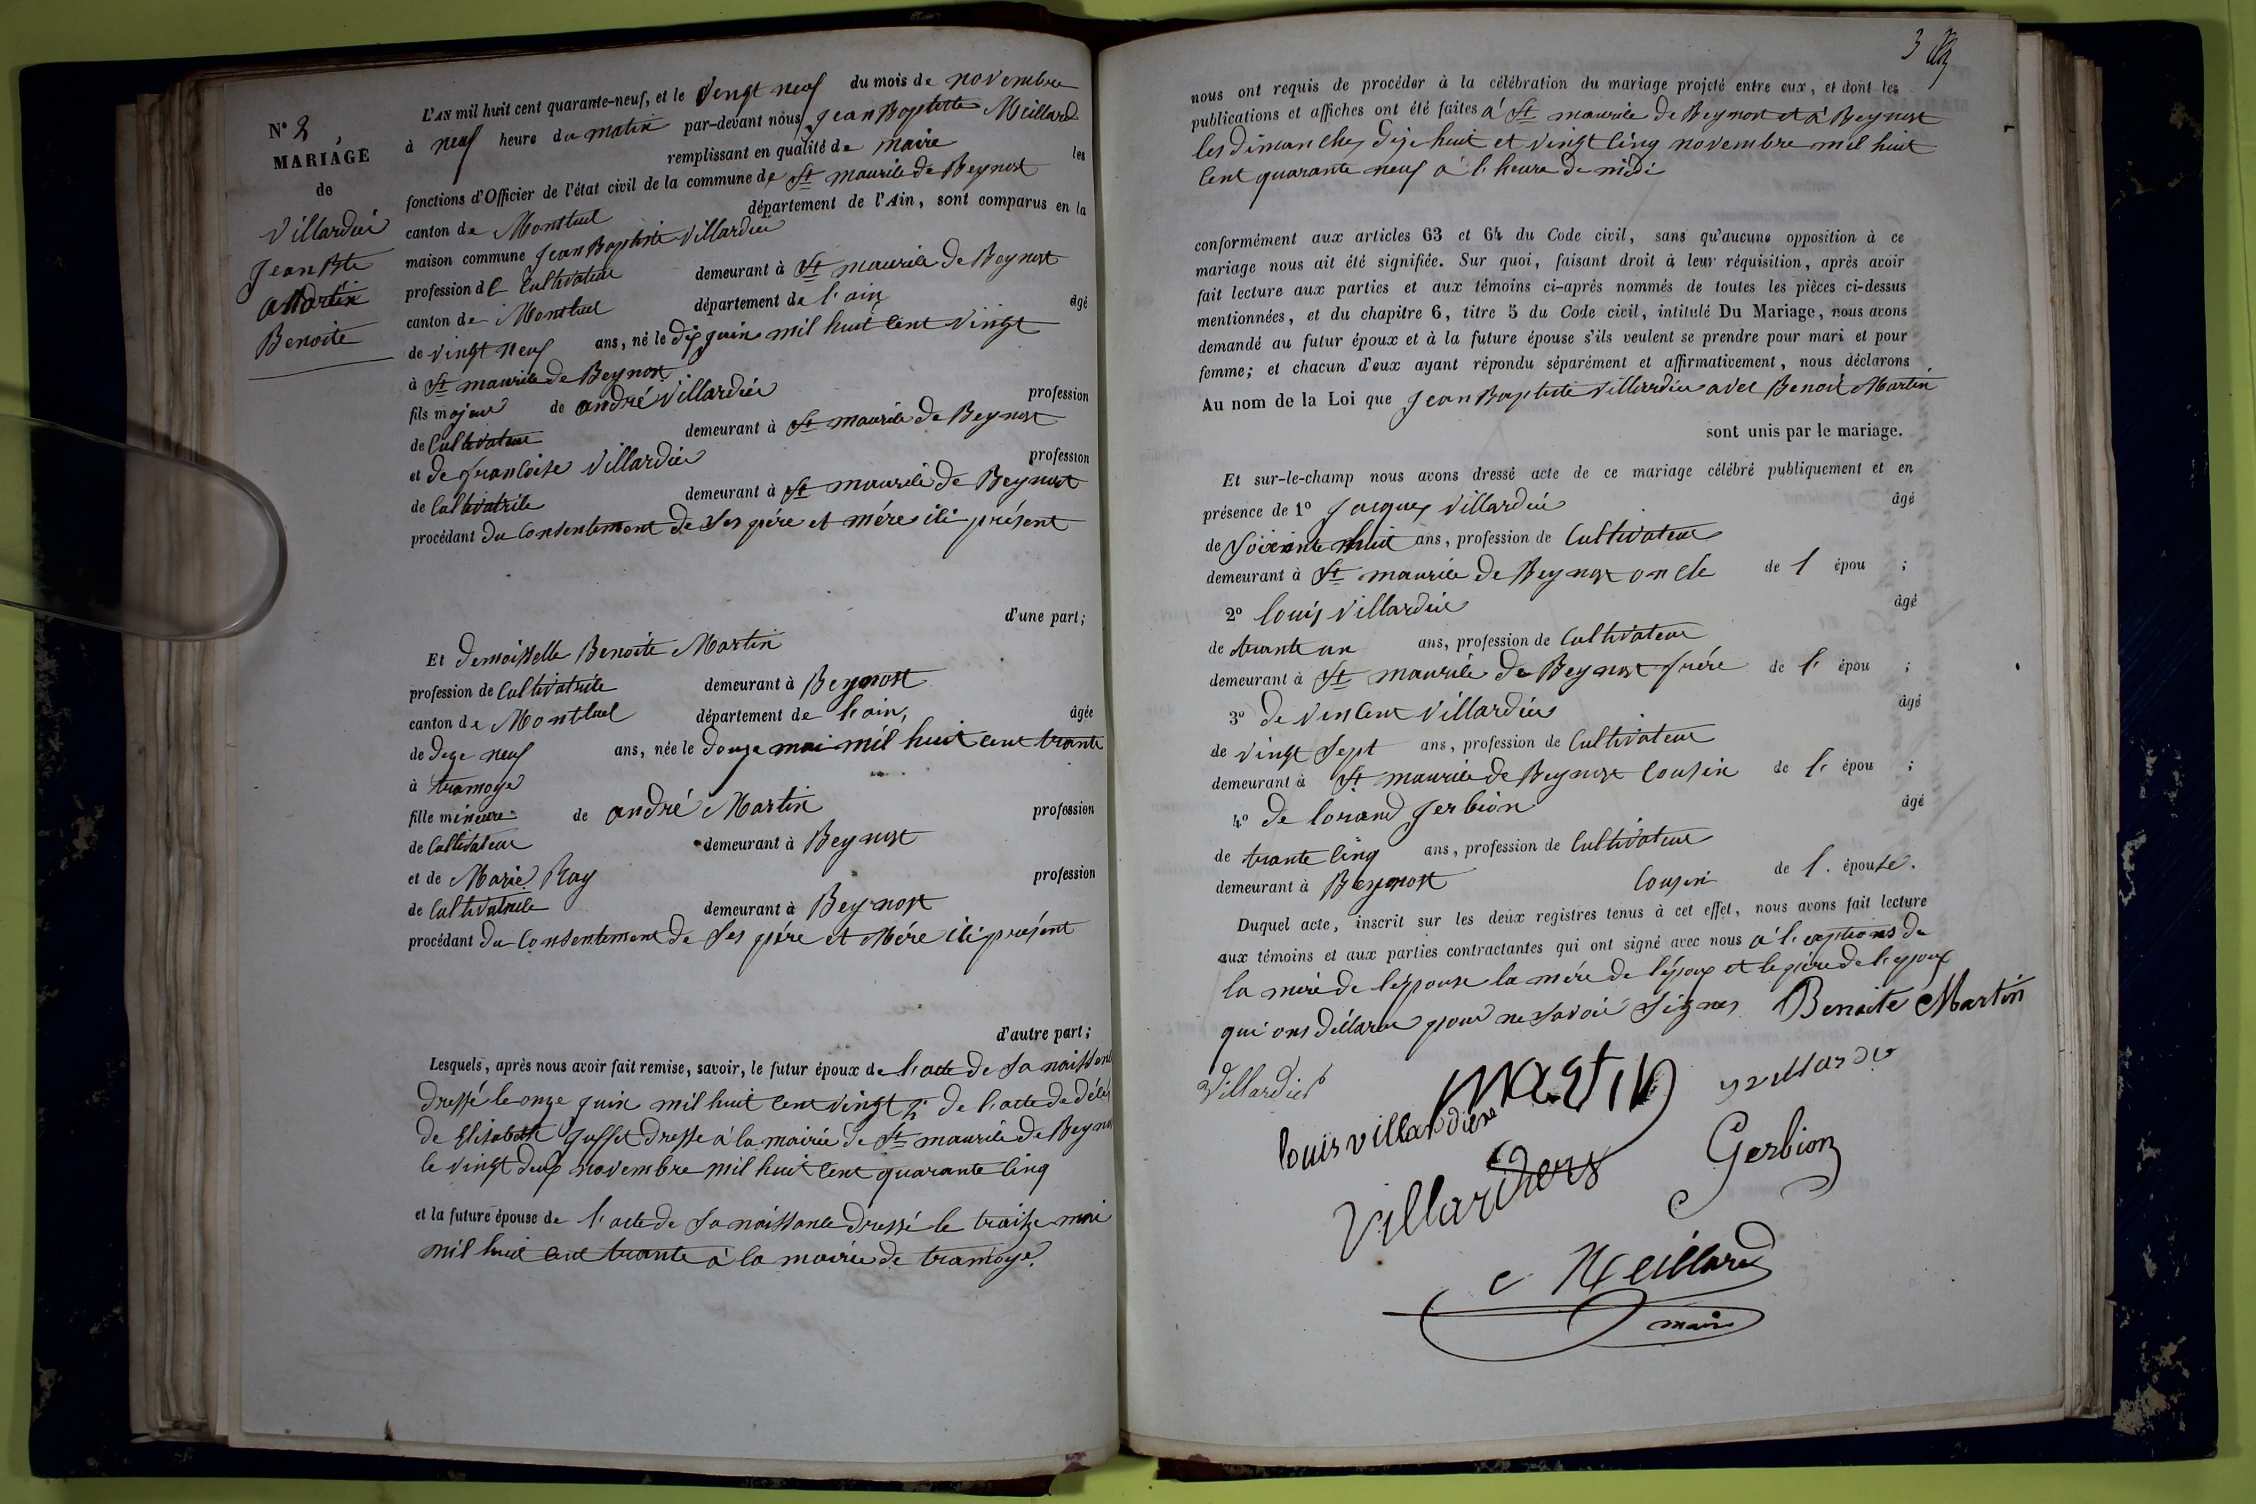 N° 2
MARIAGE
de
Villardier
Jean Bte
Martin
Benoite
L'AN mil huit cent quarante-neuf, et le vengt neuf du mois de novembre
à neuf heure du matin par-devant nous Jean Baptiste Meillard
remplissant en qualité de maire les
fonctions d'Officier de l'état civil de la commune de St maurice de Beynost
canton de Montluel département de l'Ain, sont comparus en la
maison commune Jean Baptiste Villardier
profession de Cultivateur demeurant à St maurice de Beynost
canton de Montluel département de l'ain âgé
de vingt neuf ans, né le dix juin mil huit cent vingt
à St maurice de Beynost
fils majeur de andré Villardier profession
de Cultivateur demeurant à St maurice de Beynost
et de francoise Villardier profession
de Cultivatrice demeurant à St maurice de Beynost
procédant du Consentement de Ses père et mére ici présent
d'une part;
Et demoisselle Benoite Martin
profession de Cultivatrice demeurant à Beynost
canton de Montluel département de l'ain, âgée
de dize neuf ans, née le douze mai mil huit cent trante
à tramoye
fille mineure de andré Martin profession
de Cultivateur demeurant à Beynost
et de Marie Ray profession
de Cultivatrice demeurant à Beynost
procédant du Consentement de Ses père et Mére ici présent
d'autre part;
Lesquels, après nous avoir fait remise, savoir, le futur époux de l'acte de Sa naissance
dressé le onze juin mil huit Cent vingt de l'acte de décès
de Elisabeth Juffet dresse à la mairie de St maurice de Beynost
le vingt deux novembre mil huit Cent quarante Cinq
et la future épouse de l'acte de Sa naissance dressé le traize mai
mil huit Cent trante à la mairie de tramoye.
3
nous ont requis de procéder à la célébration du mariage projeté entre eux, et dont les
publications et affiches ont été faites à St maurice de Beynost et à Beynost
les dimanches dize huit et vingt Cinq novembre mil huit
Cent quarante neuf à l'heure de midi
conformément aux articles 63 et 64 du Code civil, sans qu'aucune opposition à ce
mariage nous ait été signifiée. Sur quoi, faisant droit à leur réquisition, après avoir
fait lecture aux parties et aux témoins ci-après nommés de toutes les pièces ci-dessus
mentionnées, et du chapitre 6, titre 5 du Code civil, intitulé Du Mariage, nous avons
demandé au futur époux et à la future épouse s'ils veulent se prendre pour mari et pour
femme; et chacun d'eux ayant répondu séparément et affirmativement, nous déclarons
Au nom de la Loi que Jean Baptiste Villardier avec Benoit Martin
sont unis par le mariage.
Et sur-le-champ nous avons dressé acte de ce mariage célébré publiquement et en
présence de 1° Jacques Villardier âgé
de Soixante huit ans, profession de Cultivateur
demeurant à St maurice de Beynost oncle de l épou ;
2° louis Villardier âgé
de trante un ans, profession de Cultivateur
demeurant à St maurice de Beynost frére de l' épou ;
3° de Vincent Villardier âgé
de vingt Sept ans, profession de Cultivateur
demeurant à St maurice de Beynost Cousin de l' épou ;
4° de lorand Gerbion âgé
de trante Cinq ans, profession de Cultivateur
demeurant à Beynost Cousin de l' épouse.
Duquel acte, inscrit sur les deux registres tenus à cet effet, nous avons fait lecture
aux témoins et aux parties contractantes qui ont signé avec nous à l' exptions de
la mére de l'épouse la mére de l'époux et le père de l'epoux
qui ons déllarer pour ne Savoir Signer Benoite Martin
Villardier
Martin
Villardier
louis villardiere
Gerbion
Villardiers
Meillard
maire